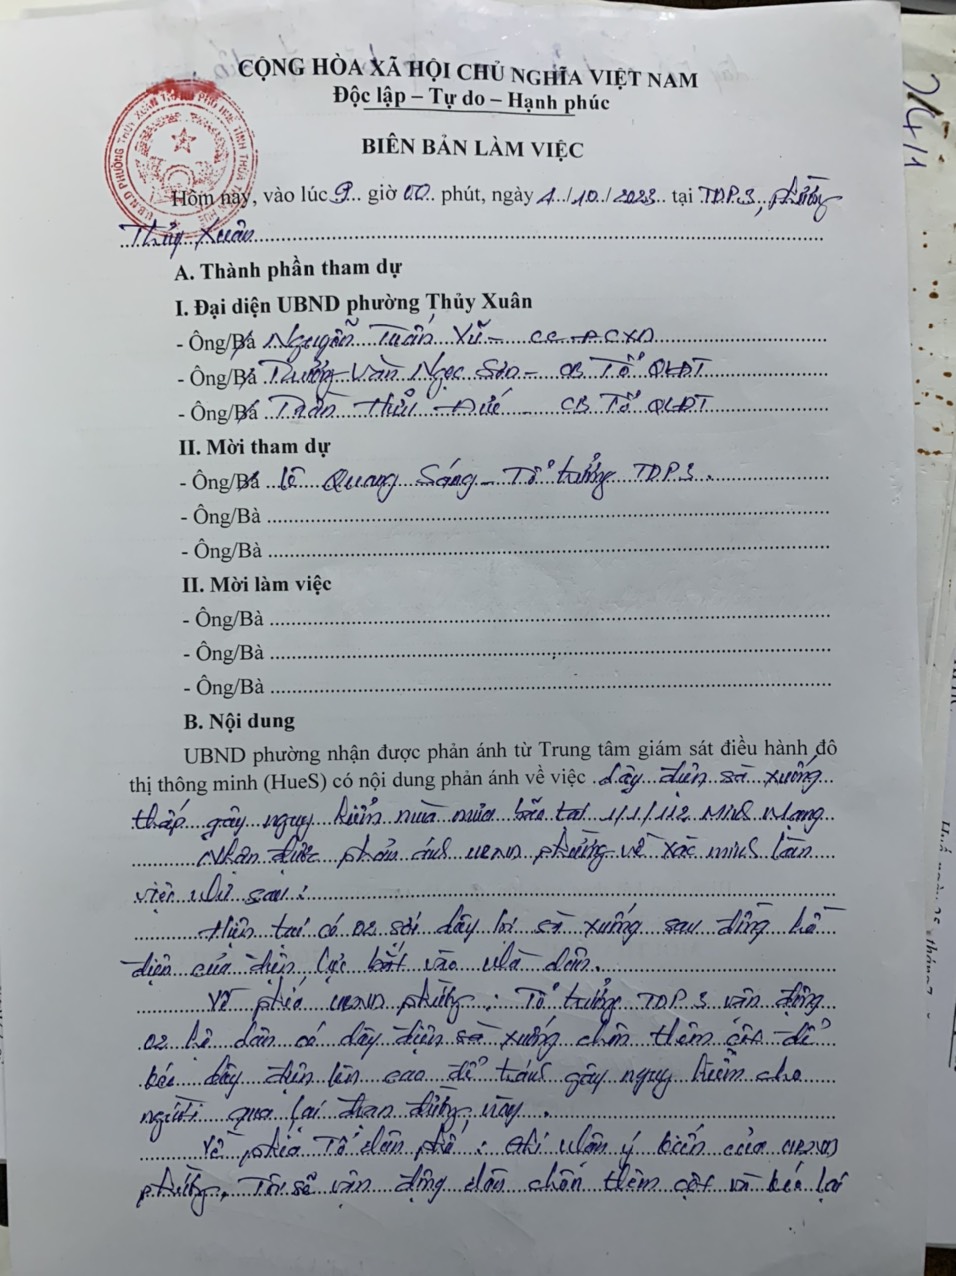 CỘNG HÒA XÃ HỘI CHỦ NGHĨA VIỆT NAM
Độc lập – Tự do – Hạnh phúc
BIÊN BẢN LÀM VIỆC
Hôm nay, vào lúc 9 giờ 00 phút, ngày 4/10/2023 tại TDP.3, phường
Thủy Xuân
A. Thành phần tham dự
I. Đại diện UBND phường Thủy Xuân
- Ông/Bà Nguyễn Tuấn Vũ - CC ĐCXD
- Ông/Bà Trương Văn Ngọc Sơn - CB Tổ QLĐT
- Ông/Bà Trần Hữu Đức - CB Tổ QLĐT
II. Mời tham dự
- Ông/Bà Lê Quang Sáng - Tổ trưởng TDP.3.
- Ông/Bà
- Ông/Bà
II. Mời làm việc
- Ông/Bà
- Ông/Bà
- Ông/Bà
B. Nội dung
UBND phường nhận được phản ánh từ Trung tâm giám sát điều hành đô
thị thông minh (HueS) có nội dung phản ánh về việc dây điện sà xuống
thấp gây nguy hiểm mùa mưa bão tại 1/1/112 Minh Mạng
Nhận được phản ánh UBND phường về xác minh làm
việc như sau:
Hiện tại có 02 sợi dây bị sà xuống sau đồng hồ
điện của điện lực bắt vào nhà dân.
Về phía UBND phường: Tổ trưởng TDP.3 vận động
02 hộ dân có dây điện sà xuống chôn thêm cột để
kéo dây điện lên cao để tránh gây nguy hiểm cho
người qua lại đoạn đường này.
Về phía Tổ dân phố: Ghi nhận ý kiến của UBND
phường, Tôi sẽ vận động dân chôn thêm cột và kéo lại
24/1